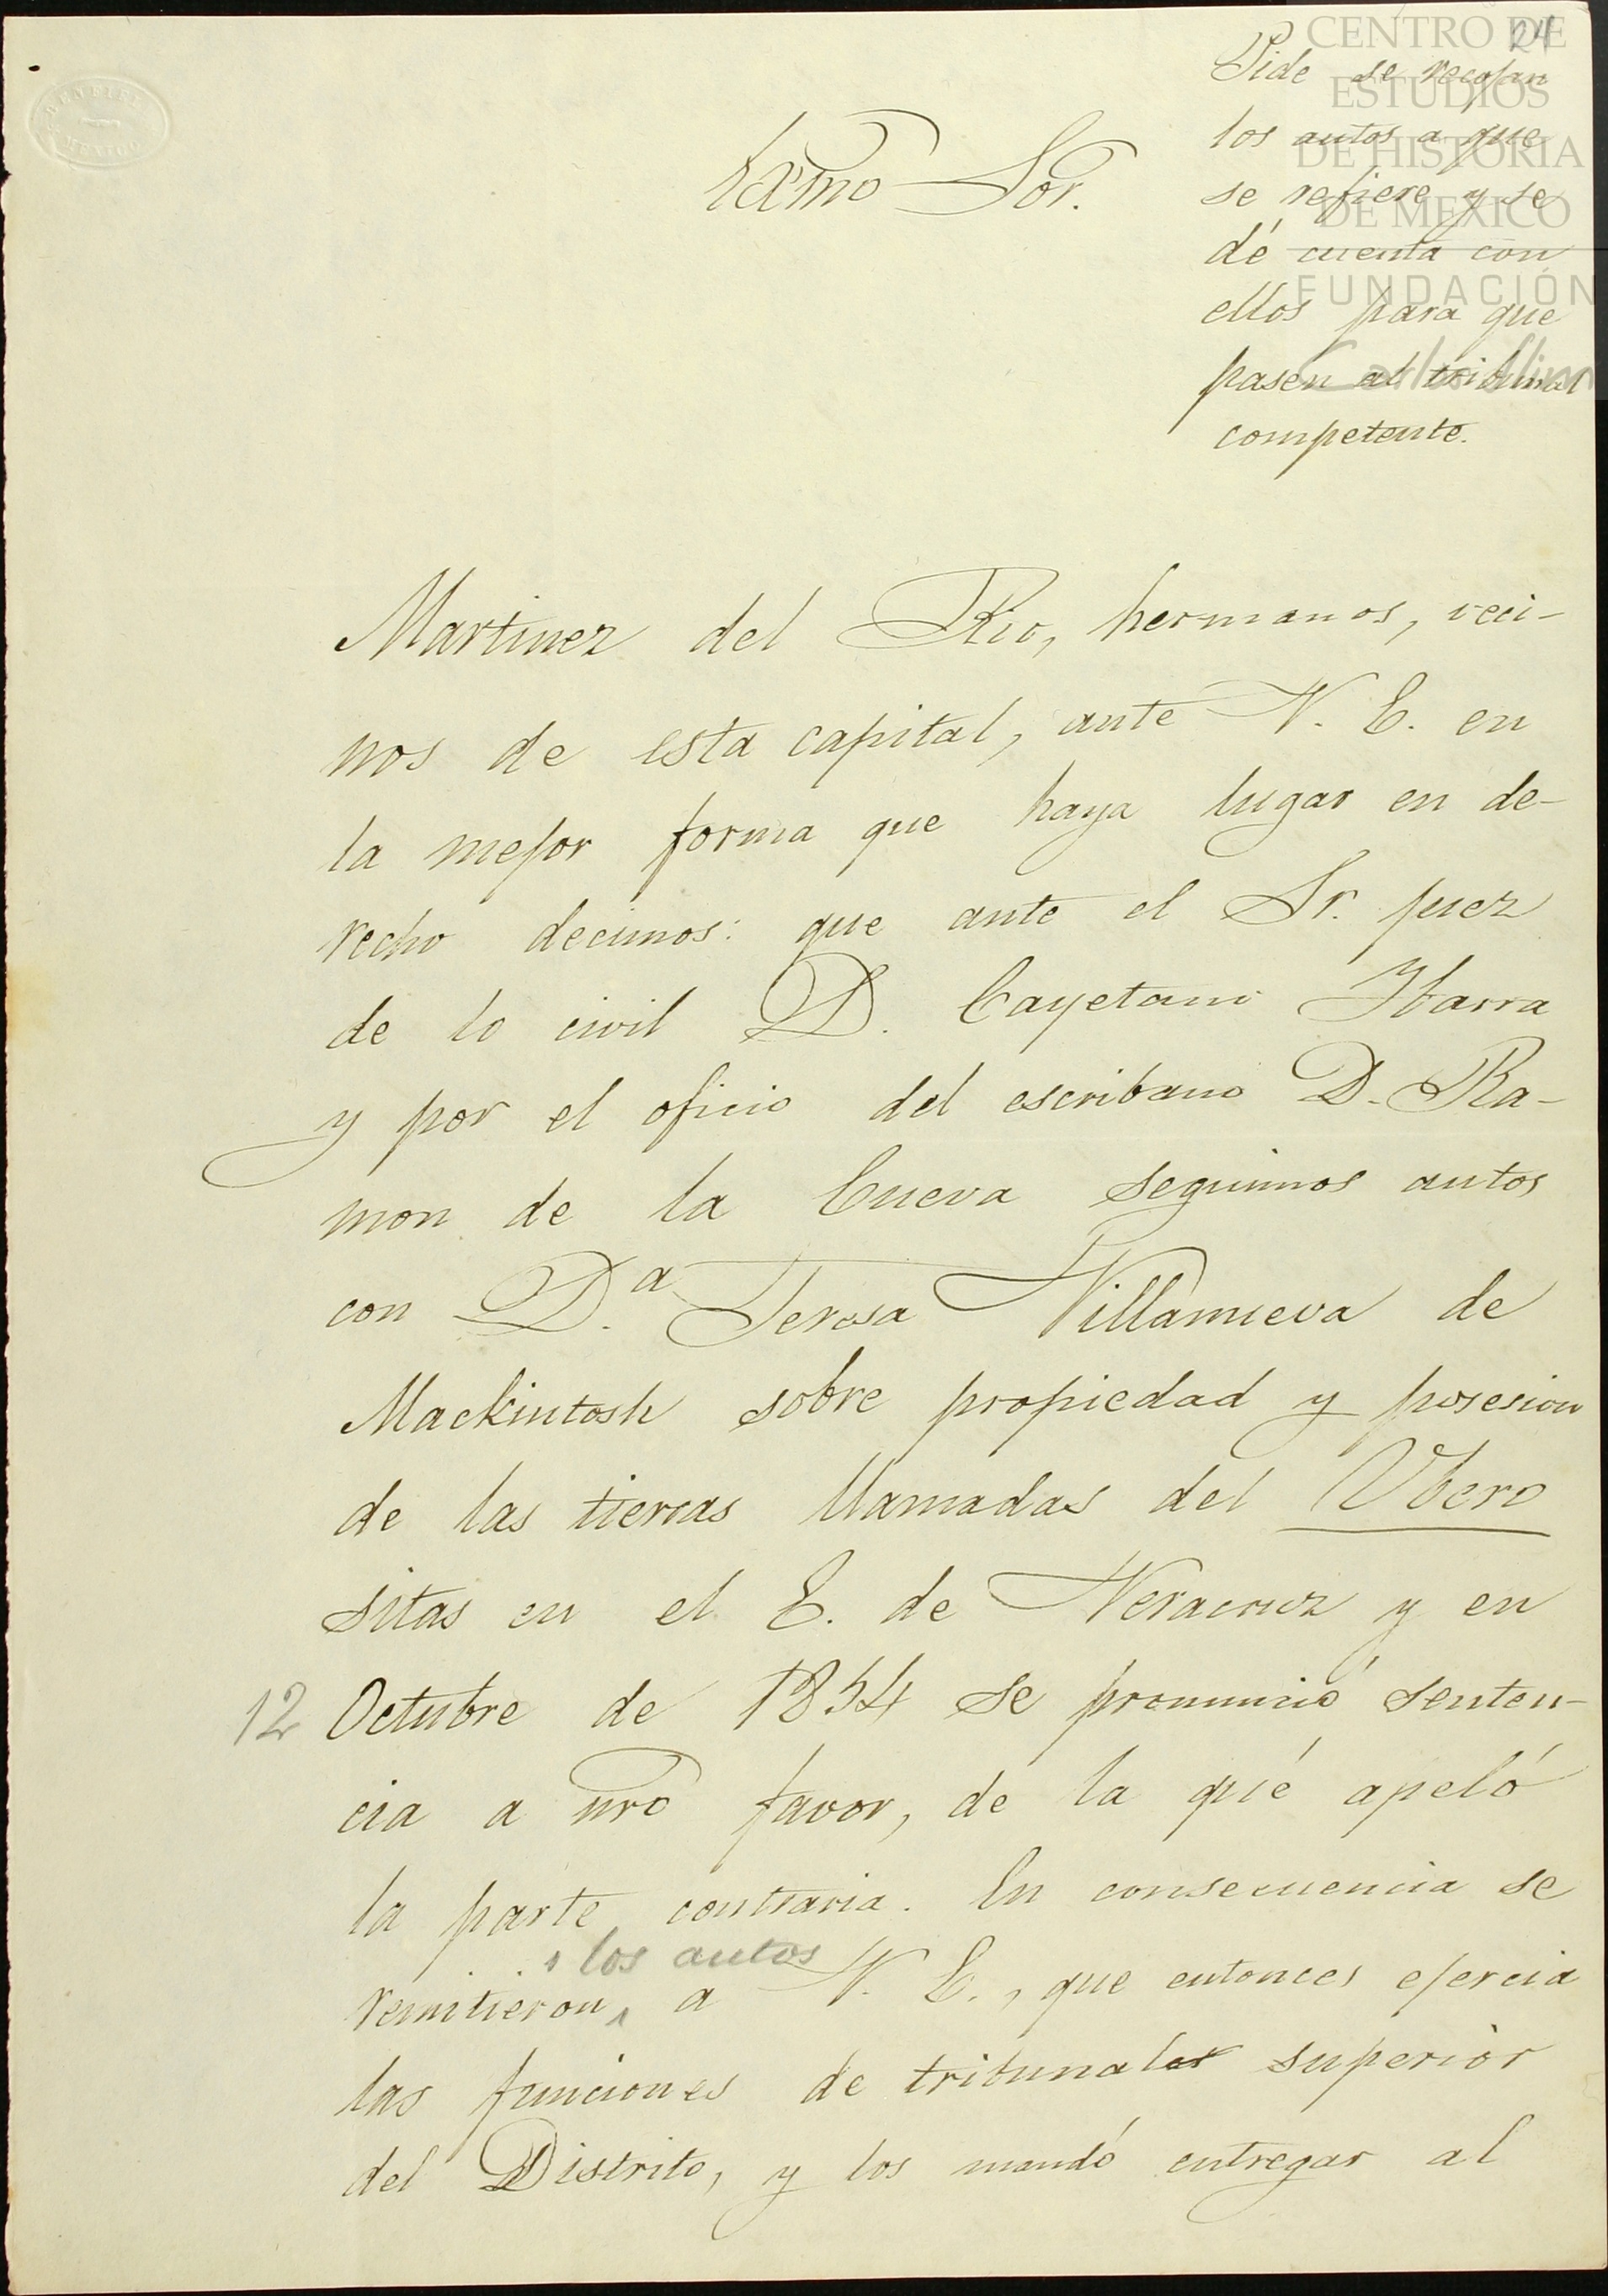 24
Pide se recojan
los autos a que
se refiere y se
dé cuenta con
ellos para que
pasen al tribunal
competente.
Exmo Sor.
Martinez del Rio, hermanos, veci-
nos de esta capital, ante V. E. en
la mejor forma que haya lugar en de-
recho decimos: que ante el Sr. juez
de lo civil D. Cayetano Ibarra
y por el oficio del escribano D. Ra-
mon de la Cueva seguimos autos
con D.ª Teresa Villanueva de
Mackintosh sobre propiedad y posesion
de las tierras llamadas del Ubero
sitas en el E. de Veracruz y en
12 Octubre de 1854 se pronunció senten-
cia a nro favor, de la qué apeló
la parte contraria. En consecuencia se
los autos
remitieron, a V. E., que entonces ejercia
las funciones de tribunal superior
del Distrito, y los mandó entregar al
CENTRO DE
ESTUDIOS
DE HISTORIA
DE MÉXICO
FUNDACIÓN
Carlos Slim
MEXICO